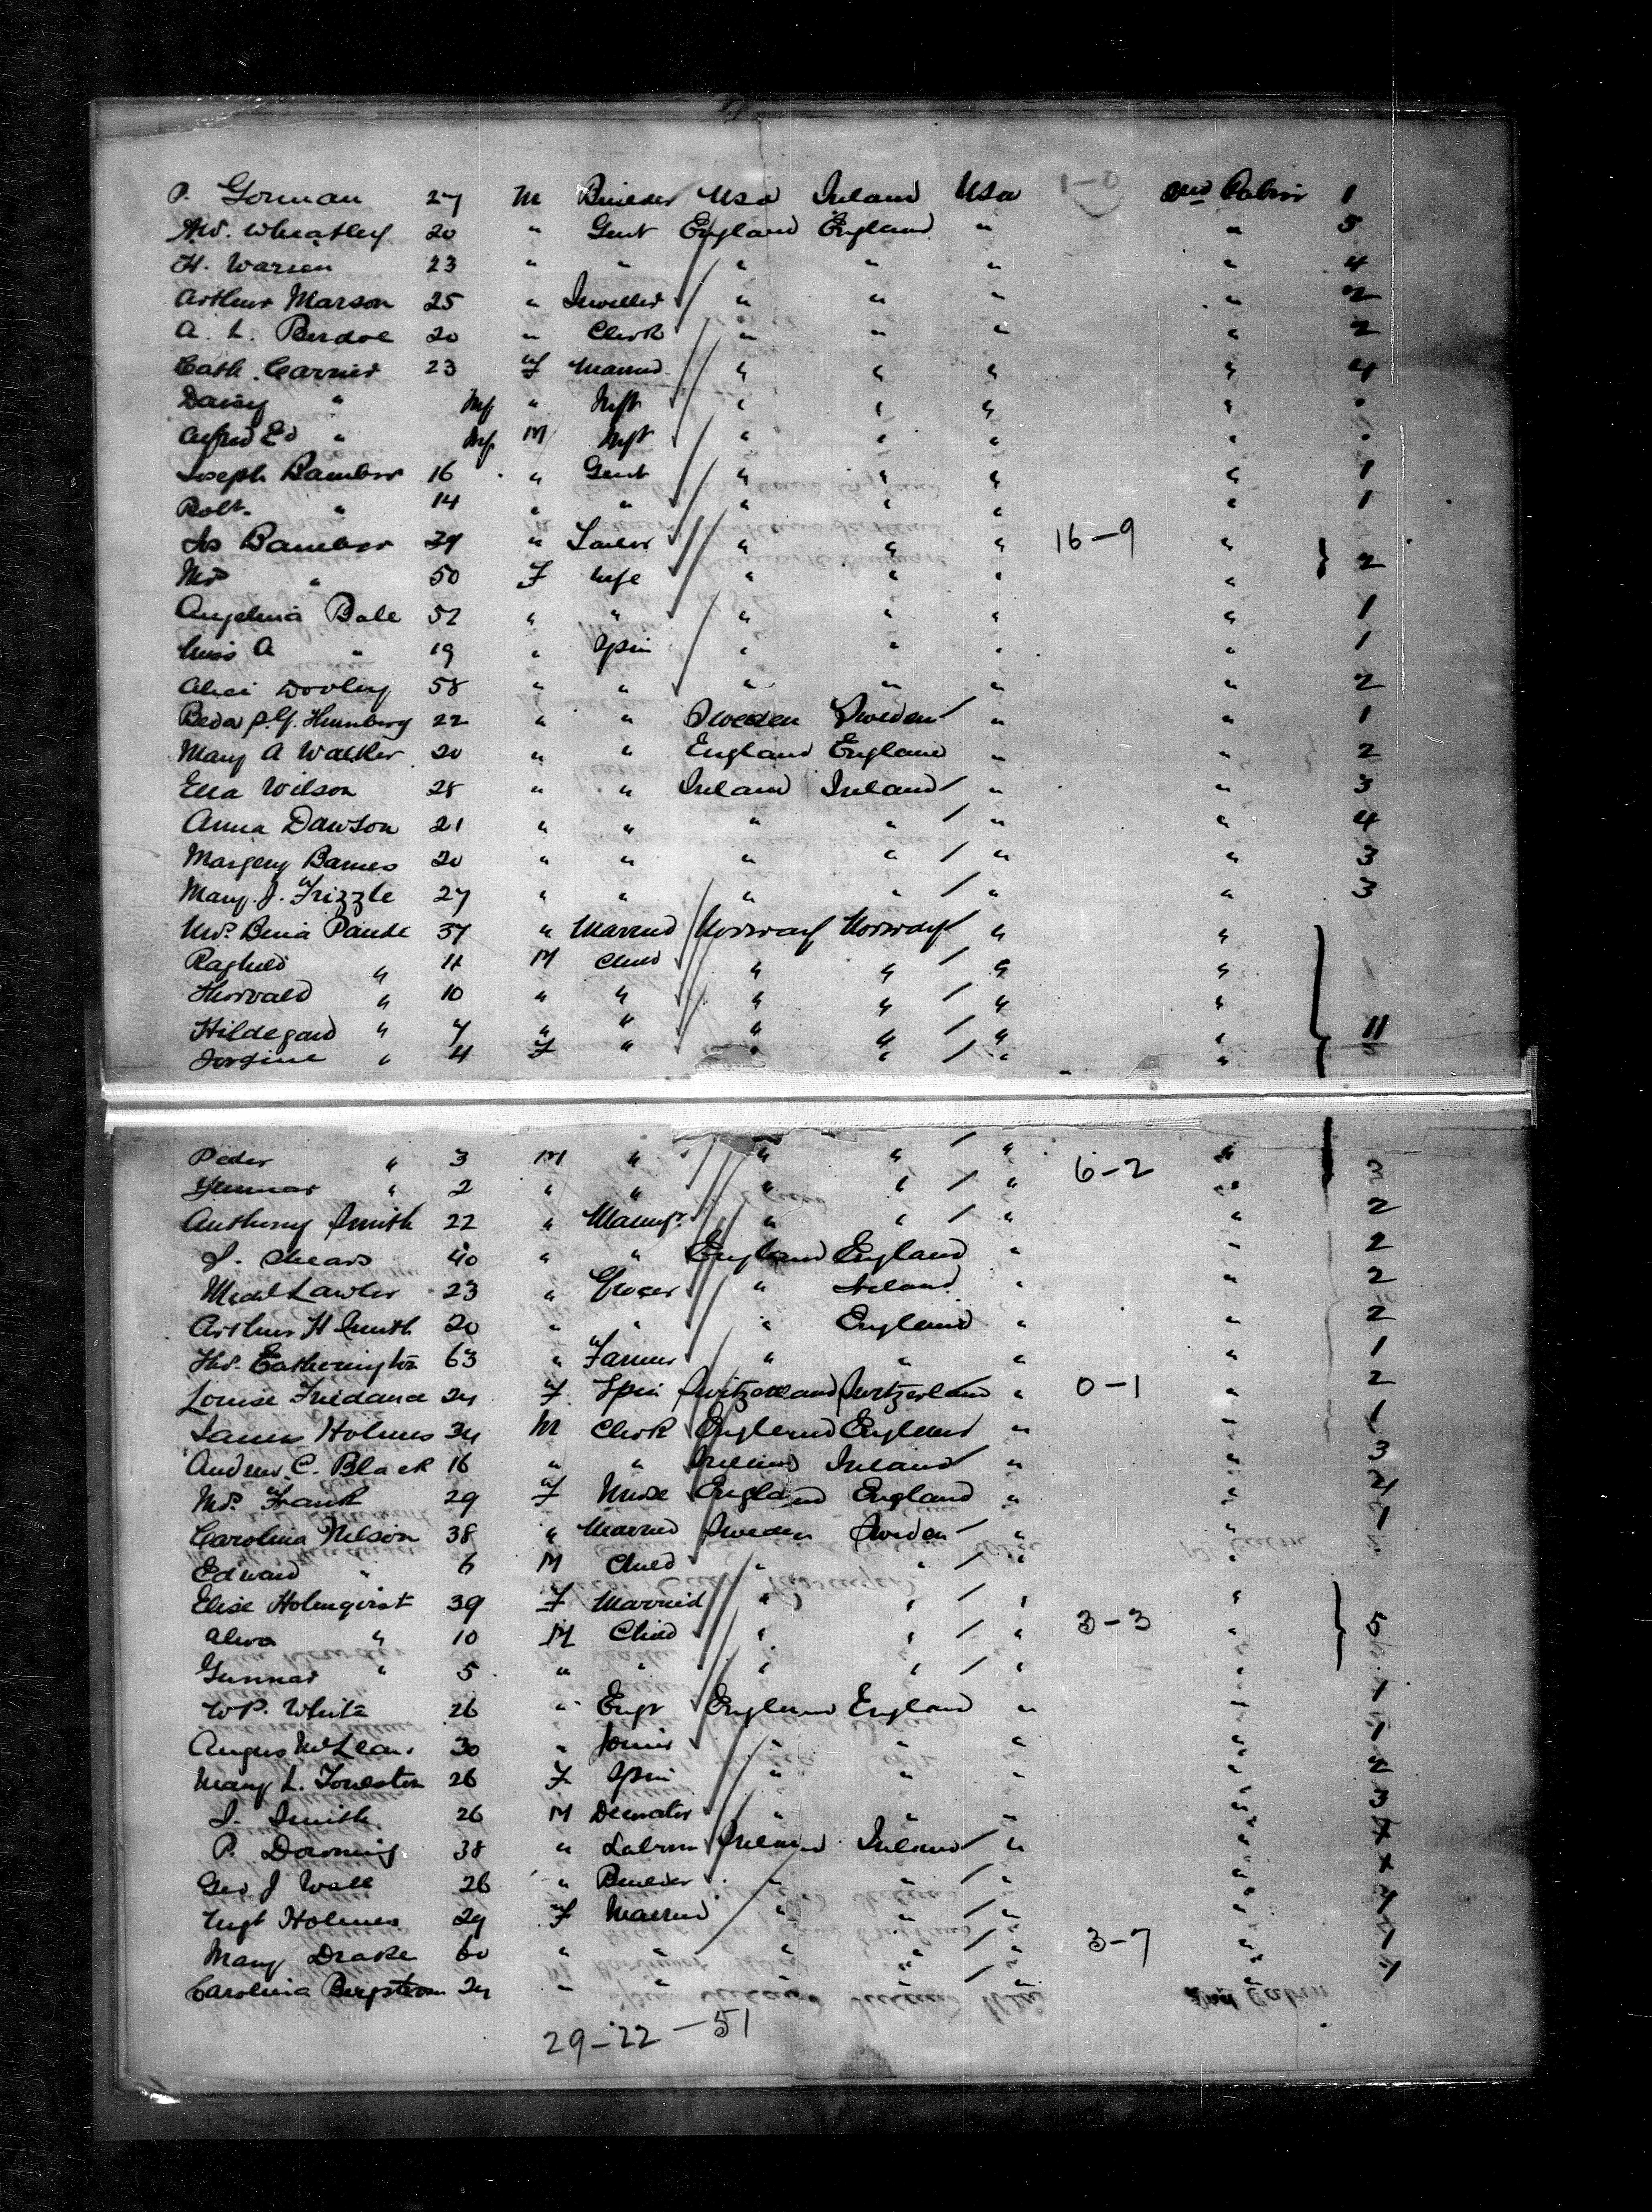 P. Gorman 27 M Builder Usa Ireland Usa 1-0 2nd Cabin 1
Alw. Wheatley 20 " Gent England England " " 5
H. Warren 23 " " " " " " 4
Arthur Marson 25 " Jeweller " " " " 2
A. L. Berdoe 20 " Clerk " " " " 2
Cath. Carrier 23 F Married " " " " 4
Daisy " Inf " Inft " " " " "
Alfred Ed " Inf M Inft " " " " "
Joseph Bamber 16 " Gent " " " " 1
Robt. " 14 " " " " " " 1
Js Bamber 29 " Tailor " " " 16-9 "
Mrs " 50 F Wife " " " " 2
Angelina Bale 52 " " " " " " 1
Miss A " 19 " Spin " " " " 1
Alice Wooley 58 " " " " " " 2
Beda 22 " " Sweden Sweden " " 1
Mary A Walker 20 " " England England " " 2
Ella Wilson 28 " " Ireland Ireland " " 3
Anna Dawson 21 " " " " " " 4
Margery Barnes 20 " " " " " " 3
Mary. J. Frizzle 27 " " " " " " 3
Mrs. Paude 37 " Married Norway Norway " "
Raghild " 11 M Child " " " "
Thorvald " 10 " " " " " "
Hildegard " 7 " " " " " " 11
" 4 F " " " " "
Peder " 3 M " " " " 6-2 " 3
Gunnar " 2 " " " " " "
Anthony Smith 22 " " " " " 2
J. Shears 40 " " England England " " 2
Lawler 23 " Grocer " Ireland " " 2
Arthur H Smith 20 " " " England " " 2
Thos. Eatherington 63 " Farmer " " " " 1
Louise 24 F Spin Switzerland Switzerland " 0-1 " 2
James Holmes 34 M Clerk England England " " 1
Andrew. C. Black 16 " " Ireland Ireland " " 3
Mrs. Frank 29 F Nurse England England " " 4
Carolina Nelson 38 " Married Sweden Sweden " " 1
Edward " 6 M Child " " " "
Elise Holmqvist 39 F Married " " " "
Alva " 10 M Child " " " 3-3 " 5
Gunnar " 5 " " " " " "
W P. White 26 " Engr England England " " 1
Angus McLean 30 " Joiner " " " " 1
Mary L. 26 F Spin " " " " 2
J. Smith 26 M Decorator " " " " 3
P. Downing 38 " Labrr Ireland Ireland " "
Geo J Wall 26 " Builder " " " "
Mgt Holmes 29 F Married " " " " 1
Mary Drake 60 " " " " " 3-7 " 1
Carolina Bergstrom 24 " " " " " 2nd Cabin 1
29-22-51